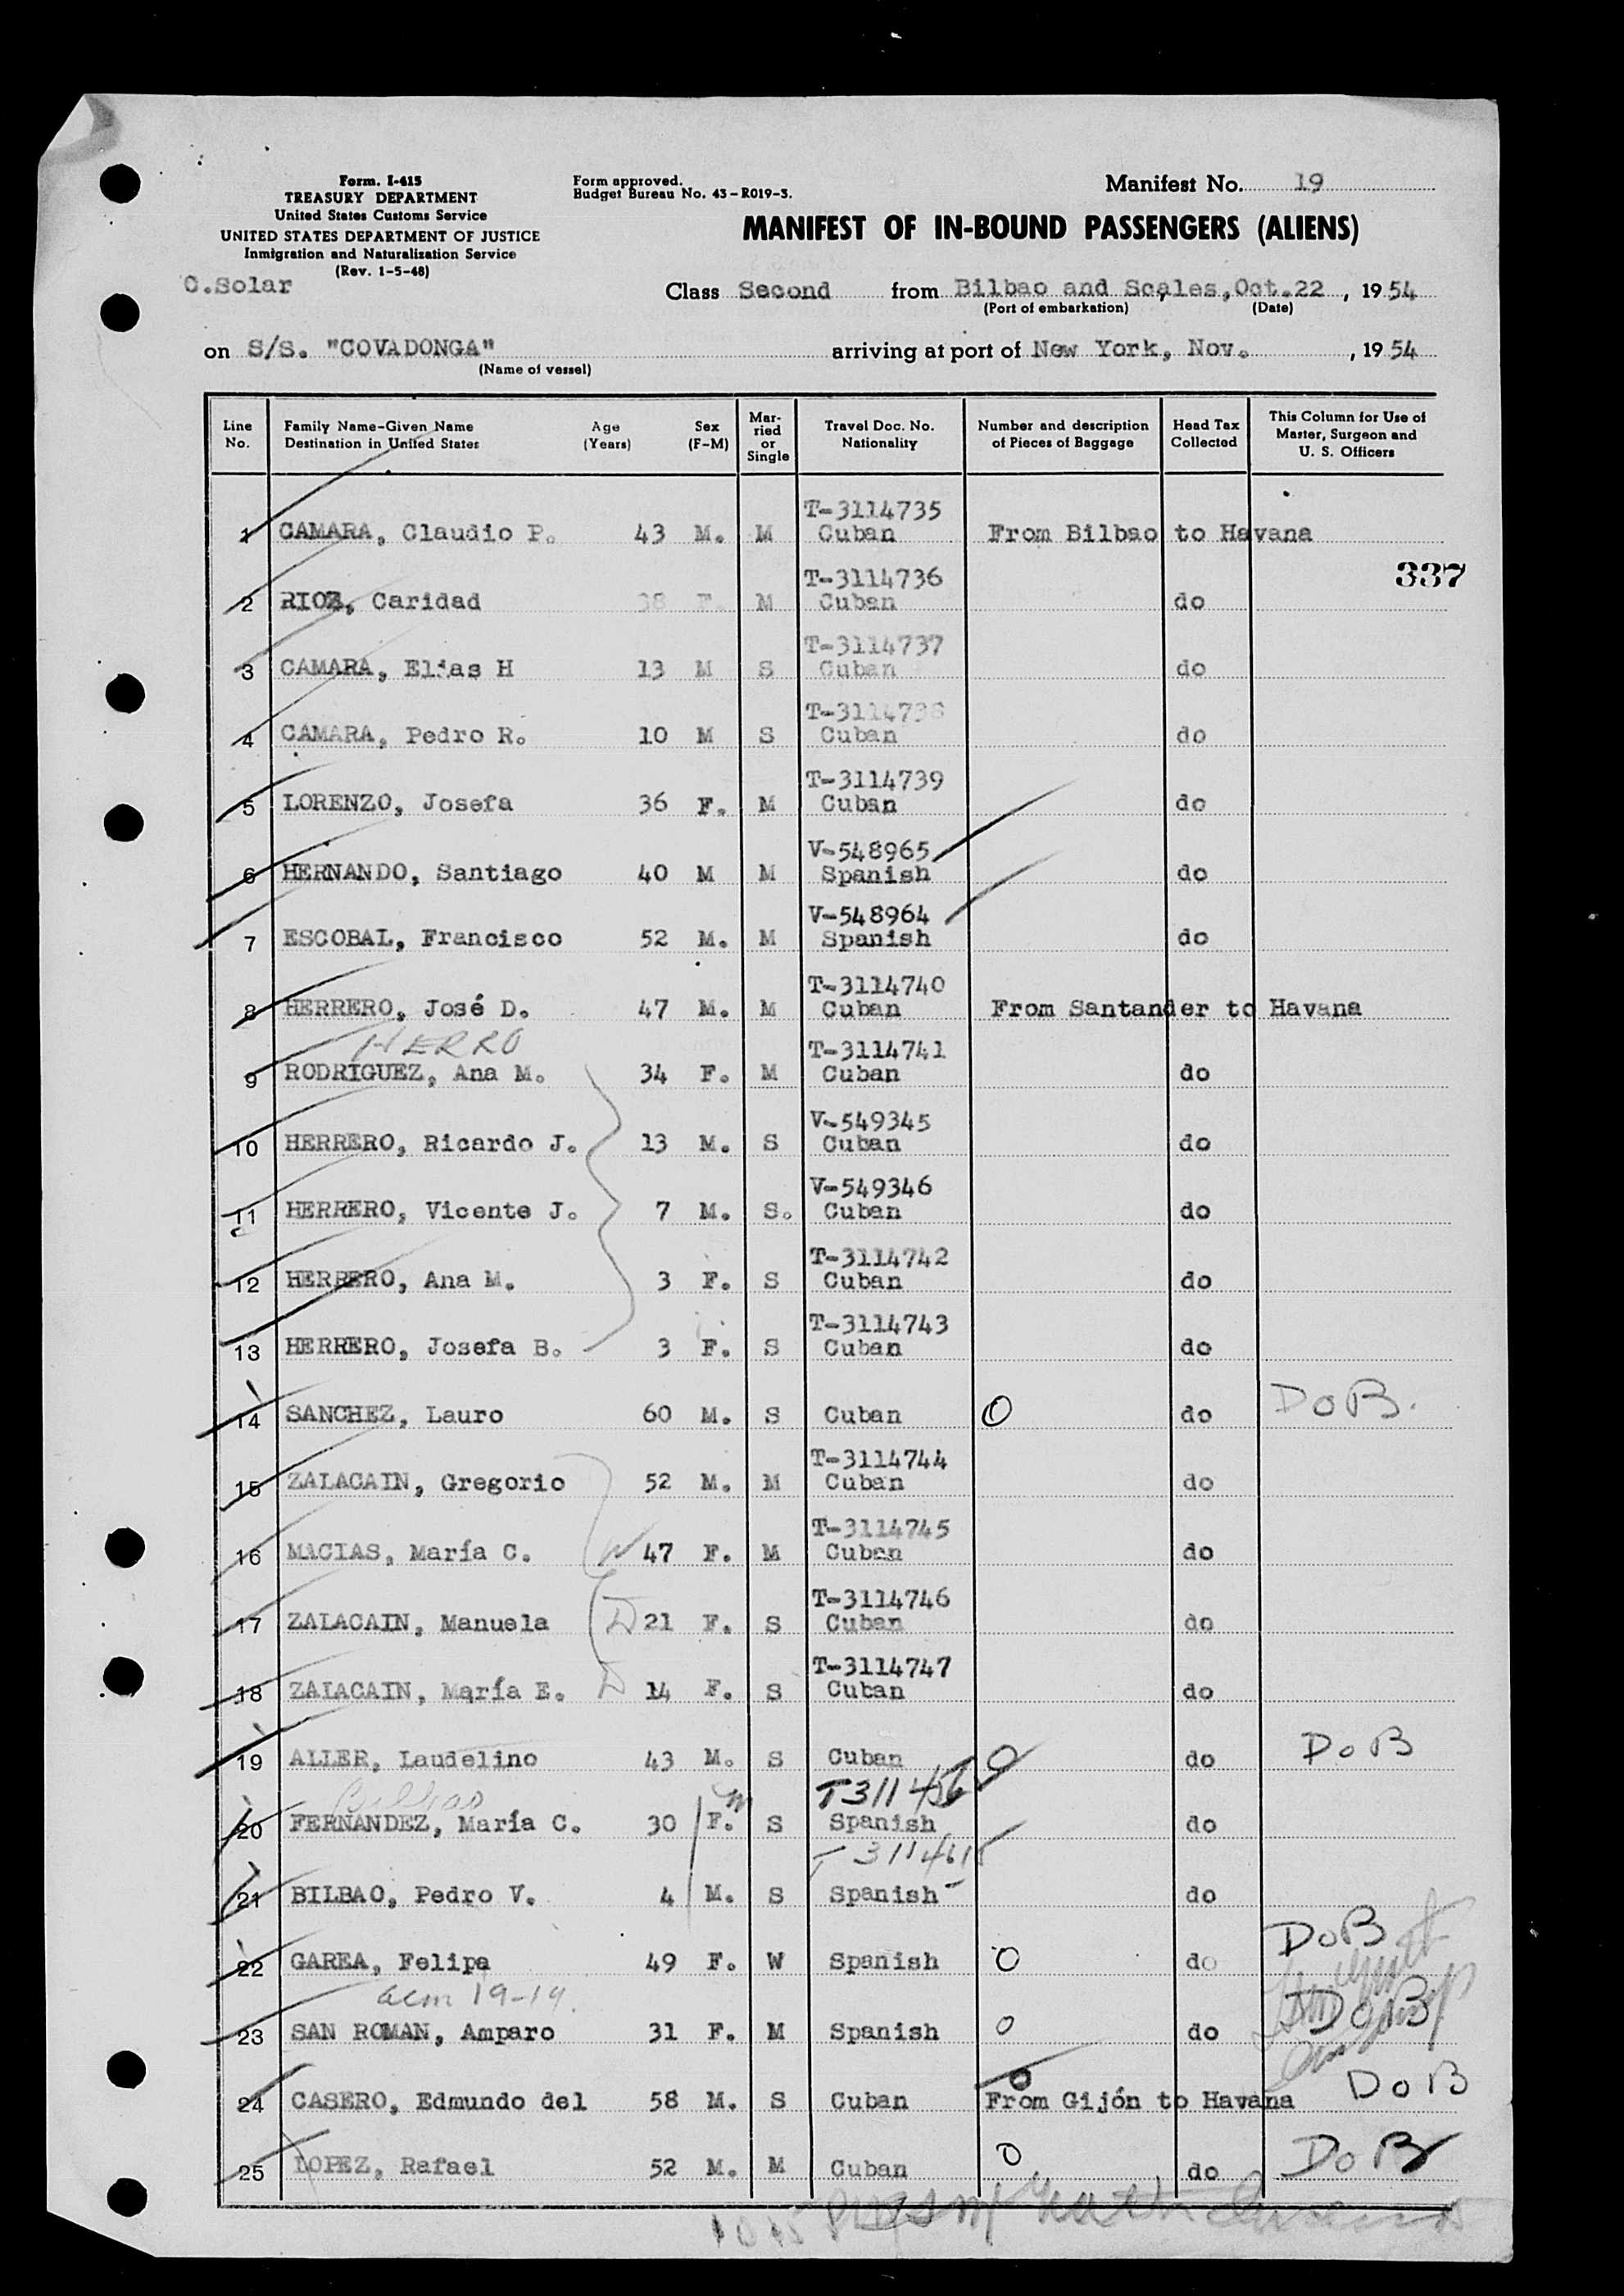 Form. I-415
TREASURY DEPARTMENT
United States Customs Service
UNITED STATES DEPARTMENT OF JUSTICE
Inmigration and Naturalization Service
(Rev. 1-5-48)
Form approved.
Budget Bureau No. 43-R019-3.
Manifest No. 19
MANIFEST OF IN-BOUND PASSENGERS (ALIENS)
C.Solar
Class Second from Bilbao and Scales, Oct.22, 1954
(Port of embarkation) (Date)
on S/S. "COVADONGA" arriving at port of New York, Nov. , 1954
(Name of vessel)
Line No. Family Name-Given Name Destination in United States Age (Years) Sex (F-M) Mar-ried or Single Travel Doc. No. Nationality Number and description of Pieces of Baggage Head Tax Collected This Column for Use of Master, Surgeon and U. S. Officers
T-3114735
1 CAMARA, Claudio P. 43 M. M Cuban From Bilbao to Havana
337
T-3114736
2 RIOZ, Caridad 38 F. M Cuban do
T-3114737
3 CAMARA, Elias H 13 M S Cuban do
T-3114738
4 CAMARA, Pedro R. 10 M S Cuban do
T-3114739
5 LORENZO, Josefa 36 F. M Cuban do
V-548965
6 HERNANDO, Santiago 40 M M Spanish do
V-548964
7 ESCOBAL, Francisco 52 M. M Spanish do
T-3114740
8 HERRERO, José D. 47 M. M Cuban From Santander to Havana
HERRO
T-3114741
9 RODRIGUEZ, Ana M. 34 F. M Cuban do
V-549345
10 HERRERO, Ricardo J. 13 M. S Cuban do
V-549346
11 HERRERO, Vicente J. 7 M. S. Cuban do
T-3114742
12 HERRERO, Ana M. 3 F. S Cuban do
T-3114743
13 HERRERO, Josefa B. 3 F. S Cuban do
14 SANCHEZ, Lauro 60 M. S Cuban O do DoB.
T-3114744
15 ZALACAIN, Gregorio 52 M. M Cuban do
T-3114745
16 MACIAS, María C. W 47 F. M Cuban do
T-3114746
17 ZALACAIN, Manuela D 21 F. S Cuban do
T-3114747
18 ZALACAIN, María E. D 14 F. S Cuban do
19 ALLER, Laudelino 43 M. S Cuban O do DoB
Bilbao
20 FERNANDEZ, María C. 30 F. m S Spanish do
21 BILBAO, Pedro V. 4 M. S Spanish do
22 GAREA, Felipa 49 F. W Spanish O do DoB
19-19.
23 SAN ROMAN, Amparo 31 F. M Spanish O do DoB
24 CASERO, Edmundo del 58 M. S Cuban O From Gijón to Havana DoB
25 LOPEZ, Rafael 52 M. M Cuban O do DoB